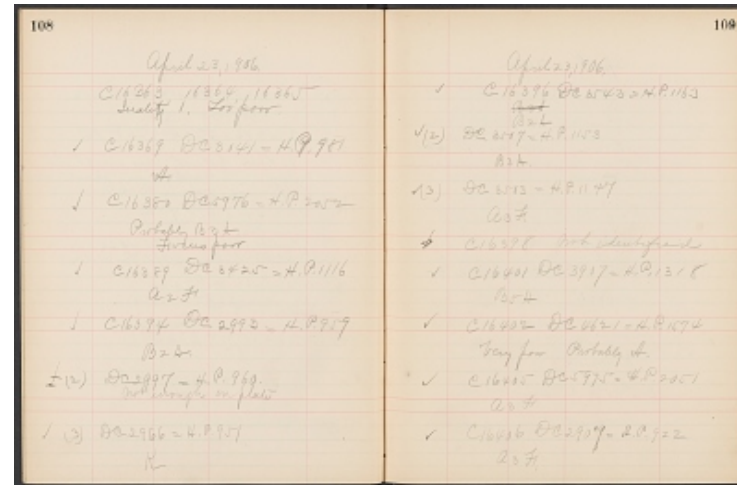 108
April 23, 1906.
C 16363, 16364, 16365
Quality 1. Too poor.
✓ C 16369 DC 3041 = H.P. 981
A
✓ C 16380 DC 5976 = H.P. 2052
Probably B 2 A
Focus poor
✓ C 16389 DC 3425 = H.P. 1116
A 2 F
✓ C 16394 DC 2993 = H.P. 959
(2) DC 2997 = H.P. 960.
Not enough on plate
✓ (3) DC 2966 = H.P. 951
K
109
April 23, 1906.
✓ C 16396 DC 3543 = H.P. 1163
✓(2) DC 3507 = H.P. 1153
✓(3) DC 3503 = H.P. 1147
A 3 F.
C 16398 Not identified
✓ C 16401 DC 3917 = H.P. 1318
B 5 A
✓ C 16402 DC 4621 = H.P. 1574
Very poor Probably A.
✓ C 16405 DC 5975 = H.P. 2051
A 3 F
✓ C 16406 DC 2907 = H.P. 922
A 3 F.